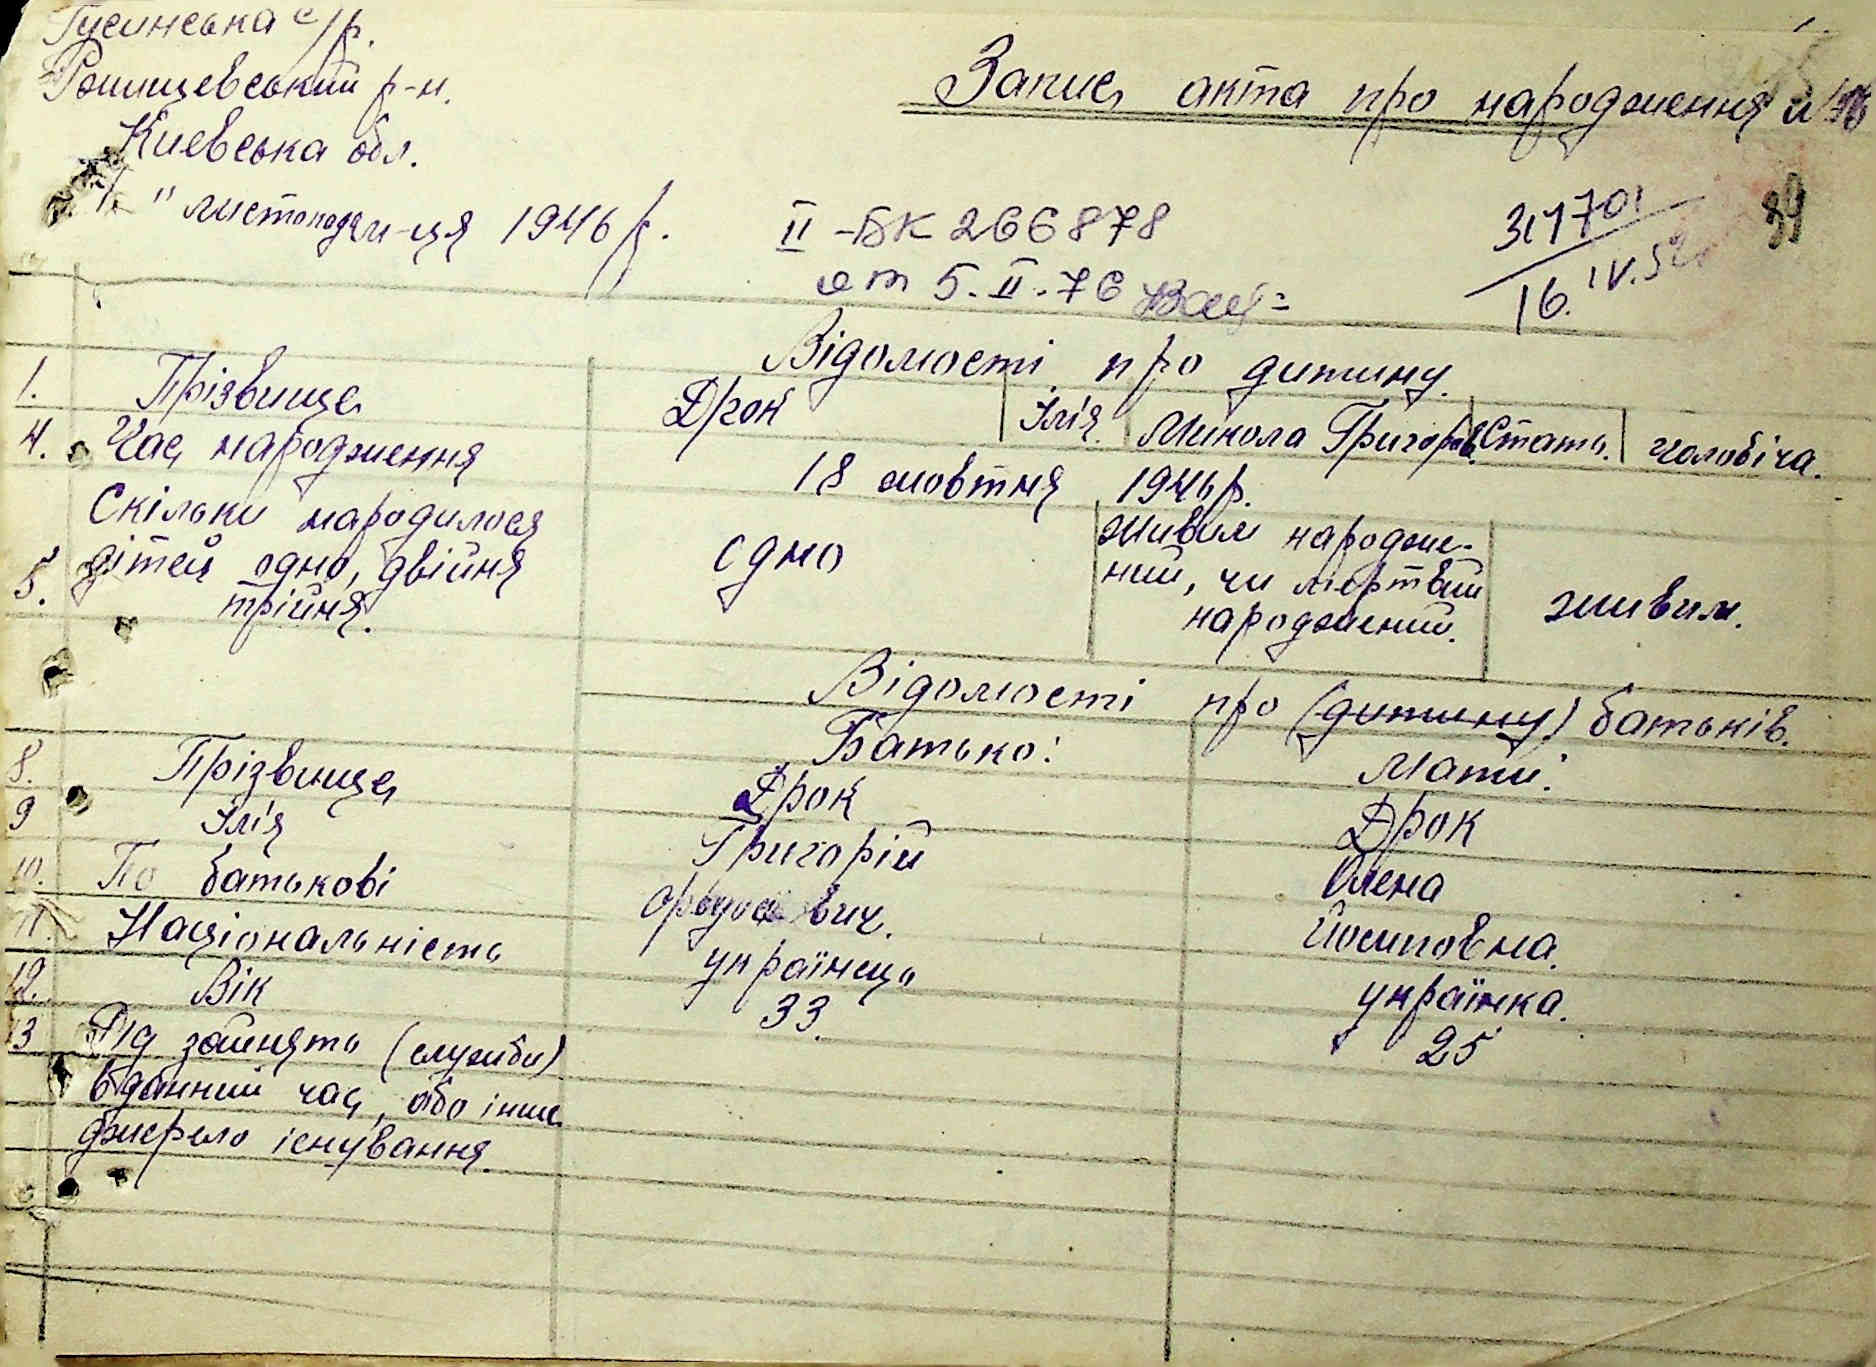 Гусинська с/р.
Ржищевський р-н.
Київська обл.
" листопада м-ця 1946 р.
Запис акта про народження №
39
II-БК 266878
от 5.II.76
16.IV.52
Відомості про дитину.
1. Прізвище Дрок Ім'я. Микола Григоров. Стать. чоловіча.
4. Час народження 18 жовтня 1946 р.
5. Скільки народилося
дітей одно, двійня
трійня.
одно
живим народже-
ний, чи мертвий
народжений.
живим.
Відомості про (дитину) батьків.
Батько: Мати:
8. Прізвище Дрок Дрок
9 Ім'я Григорій Олена
10. По батькові Йосиповна.
11. Національність українець українка.
12. Вік 33. 25
13 Рід зайнять (служби)
в данний час, або інше
джерело існування.